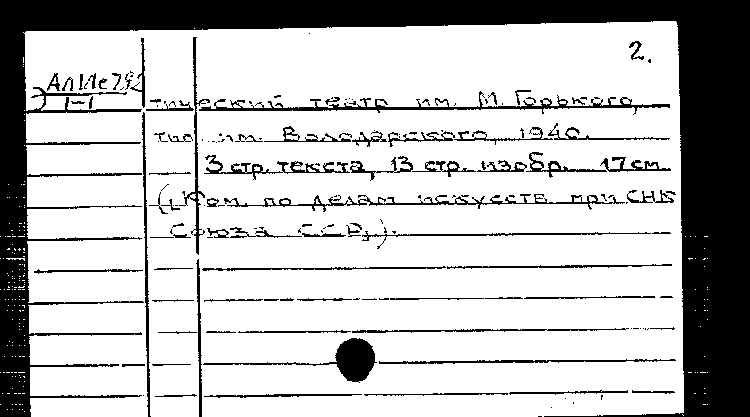 2.
АлИе792
1-1
тический театр им. М. Горького,
тип. им. Володарского, 1940.
3 стр. текста, 13 стр. изобр. 17 см
(„Ком. по делам искусств при СНК
Союза ССР„).